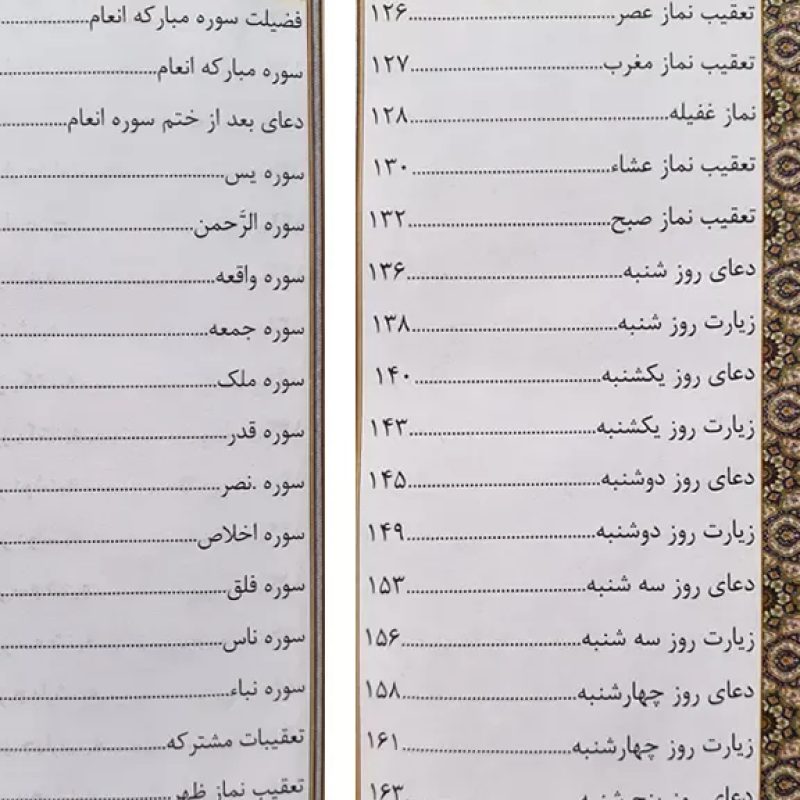 تعقیب نماز عصر................۱۲۶
تعقیب نماز مغرب................۱۲۷
نماز غفیله................۱۲۸
تعقیب نماز عشاء................۱۳۰
تعقیب نماز صبح................۱۳۲
دعای روز شنبه................۱۳۶
زیارت روز شنبه................۱۳۸
دعای روز یکشنبه................۱۴۰
زیارت روز یکشنبه................۱۴۳
دعای روز دوشنبه................۱۴۵
زیارت روز دوشنبه................۱۴۹
دعای روز سه شنبه................۱۵۳
زیارت روز سه شنبه................۱۵۶
دعای روز چهارشنبه................۱۵۸
زیارت روز چهارشنبه................۱۶۱
دعای روز پنج شنبه................۱۶۳
فضیلت سوره مبارکه انعام................
سوره مبارکه انعام................
دعای بعد از ختم سوره انعام................
سوره یس................
سوره الرَّحمن................
سوره واقعه................
سوره جمعه................
سوره ملک................
سوره قدر................
سوره .نصر................
سوره اخلاص................
سوره فلق................
سوره ناس................
سوره نباء................
تعقیبات مشترکه................
تعقیب نماز ظهر................